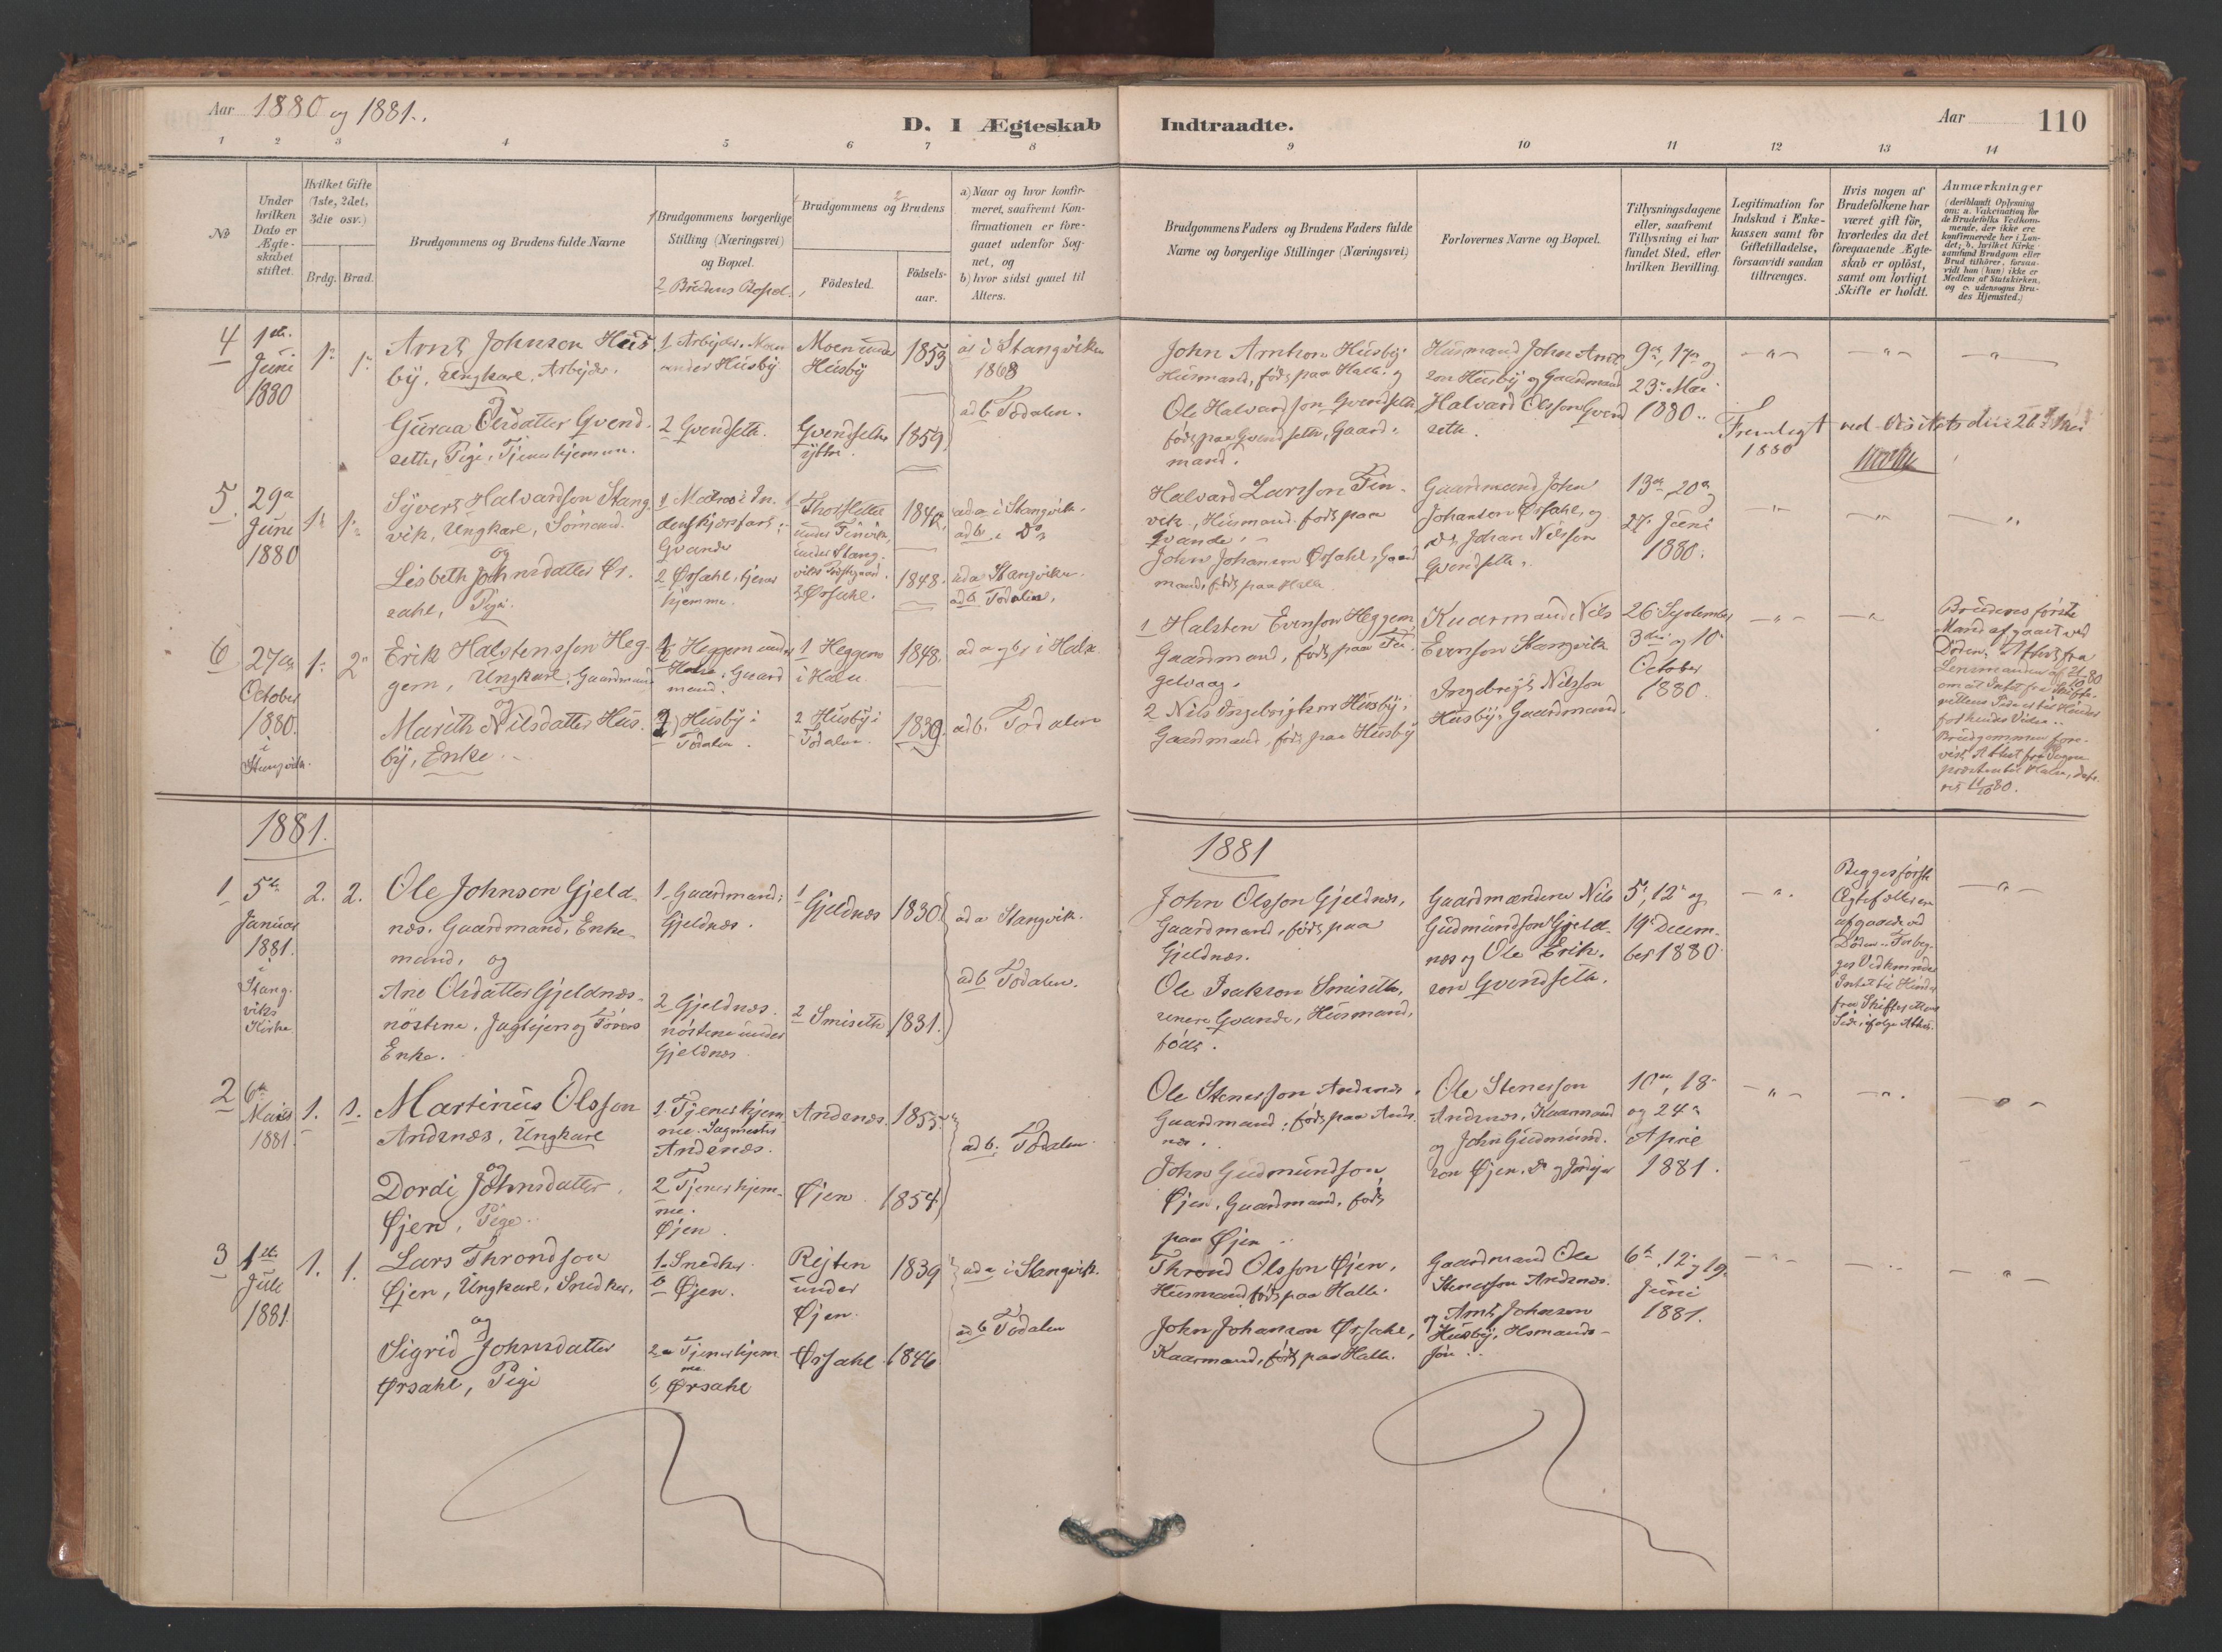 Aar 1880 og 1881.
D. I Ægteskab Indtraadte.
Aar 110
1 2 3 4 5 6 7 8 9 10 11 12 13 14
No
Under hvilken Dato er Ægteskabet stiftet.
Hvilket Gifte (1ste, 2det, 3die osv.)
Brdg. Brud.
Brudgommens og Brudens fulde Navne
1 Brudgommens borgerlige Stilling (Næringsvei) og Bopæl.
2 Brudens Bopæl.
Brudgommens og Brudens
Födested.
Födsels-aar.
a) Naar og hvor konfirmeret, saafremt Konfirmationen er foregaaet udenfor Sognet, og
b) hvor sidst gaaet til Alters.
Brudgommens Faders og Brudens Faders fulde Navne og borgerlige Stillinger (Næringsvei)
Forlovernes Navne og Bopæl.
Tillysningsdagene eller, saafremt Tillysning ei har fundet Sted, efter hvilken Bevilling.
Legitimation for Indskud i Enkekassen samt for Giftetilladelse, forsaavidt saadan tiltrænges.
Hvis nogen af Brudefolkene har været gift før, hvorledes da det foregaaende Ægteskab er opløst, samt om lovligt Skifte er holdt.
Anmærkninger (deriblandt Oplysning om: a. Vakcination for de Brudefolks Vedkommende, der ikke ere konfirmerede her i Landet; b. hvilket Kirkesamfund Brudgom eller Brud tilhører, forsaavidt han (hun) ikke er Medlem af Statskirken, og c. udensogns Brudes Hjemsted.)
4
1ste Juni 1880
1 1
Arnt Johnson Hus
by, Ungkarl, Arbejder.
og
Guraa Olsdatter Gvend
seth, Pige, Tjener hjemme.
1 Arbejder, Moen
under Husby
2 Gvendseth.
Moen under
Husby
Gvendseth
yttre
1853
1859
a i Stangviken
1868
ad b Todalen.
John Arntson Husby
Husmand, født paa Halle og
Ole Halvardson Gvendseth
født paa Gvendseth, Gaard
mand.
Husmand John Arnt
son Husby og Gaardmand
Halvard Olsson Gvend
seth.
9de, 17de og
23de Mai
1880.
Fremlagt ved Visitats den 26de Mai
1880
5.
29de
Juni
1880
1 1
Syvert Halvardson Stang
vik, Ungkarl, Sömand.
og
Lisbeth Johnsdatter Ør
sahl, Pige.
1 Matros i In
denskjærsfart;
Gvande
2 Ørsahl, tjener
hjemme.
Thorsletta
under Finvik,
under Stang
viks Præstegaard.
2 Ørsahl.
1848.
ad a i Stangvik.
ad b i Do
ad a Stangviken.
ad b Todalen.
Halvard Larsson Fin
vik, Husmand, født paa
Gvande
John Johanson Ørsahl, Gaard
mand, født paa Halle
Gaardmand John
Johanson Ørsahl, og
do Johan Nilsson
Gvendseth.
13de, 20de og
27de Juni
1880.
6
27de
October
1880.
i
Stangvik.
1 2
Erik Halstensson Heg
gem, Ungkarl, Gaardmand
og
Marith Nilsdatter Hus
by, Enke.
1 Heggem under
Halse, Gaard
mand.
2 Husby i
Todalen.
1 Heggem
i Halse
2 Husby i
Todalen.
1848.
1839.
ad a og b i Halse
ad b. Todalen
1 Halsten Evenson Heggem
Gaardmand, født paa Fu
gelvaag.
2 Nils Ingebrigtson Husby,
Gaardmand, født paa Husby
Kaarmand Nils
Evenson Stangvik
Ingebrigt Nilsson
Husby, Gaardmand.
26 September
3die og 10
October
1880.
Brudens første
Mand afgaaet ved
Døden. Attest fra
Lensmanden
om at Intet fra Skifte
rettens Side er til Hinder
forhindes Viden.
Brudgommen fore
vist Attest fra Sogne
præsten til Halse, date
ret 11/10 80.
1881.
1881
1
5te
Januar
1881.
i
Stang
viks
Kirke
2. 2.
Ole Johnson Gjeld
næs, Gaardmand, Enke
mand, og
Ane Olsdatter Gjeldnæs
nöstene, Jagtejer og Förers
Enke.
1 Gaardmand,
Gjeldnæs.
2 Gjeldnæs
nöstene under
Gjeldnæs
1 Gjeldnæs
2 Smiseth
1830.
1831.
ad a Stangvik.
ad b Todalen.
John Olsson Gjeldnæs,
Gaardmand, født paa
Gjeldnæs.
Ole Isakson Smiseth,
senere Gvande, Husmand,
født.
Gaardmændene Nils
Gudmundson Gjeld
næs og Ole Erik
son Gvendseth.
5te, 12te og
19de Decem
ber 1880
Begges første
Ægtefæller ere
afgaaede ved
Døden. For beg
ges Vedkommende
Intet til Hinder
fra Skifterettens
Side, ifølge Attest.
2
6te
Mai
1881.
1. 1.
Martinus Olsson
Andsnæs, Ungkarl
og
Dordi Johnsdatter
Øjen, Pige.
1. Tjener hjem
me. Sagmester
Andsnæs.
2 Tjener hjem
me.
Øjen.
Andsnæs.
Øjen
1855
1854
ad b: Todalen.
Ole Stenersson Andsnæs,
Gaardmand, født paa Ands
næs.
John Gudmundson,
Øjen, Gaardmand, født
paa Øjen
Ole Stenersson
Andsnæs, Kaarmand
og John Gudmund
son Øjen, do
10de, 18
og 24de
April
1881.
3
1ste
Juli
1881.
1. 1.
Lars Throndson
Øjen, Ungkarl, Snedker,
og
Sigrid Johnsdatter
Ørsahl, Pige
1a Snedker
b Øjen.
2a Tjener hjem
me
b, Ørsahl
Rejten
under
Øjen.
Ørsahl
1839
1846
ad a i Stangvik.
ad b Todalen
Thrond Olsson Øjen,
Husmand, født paa Halle.
John Johanson Ørsahl,
Kaarmand, født paa Halle.
Gaardmand Ole
Stenersson Andsnæs.
og Arnt Johnson
Husby, Husmands
søn.
6te, 12 og 19
Juni
1881.